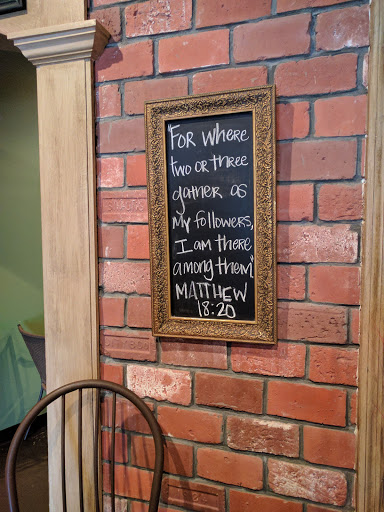 "FOR WHERE
two or three
gather as
My followers,
I am there
among them"
MATTHEW
18:20